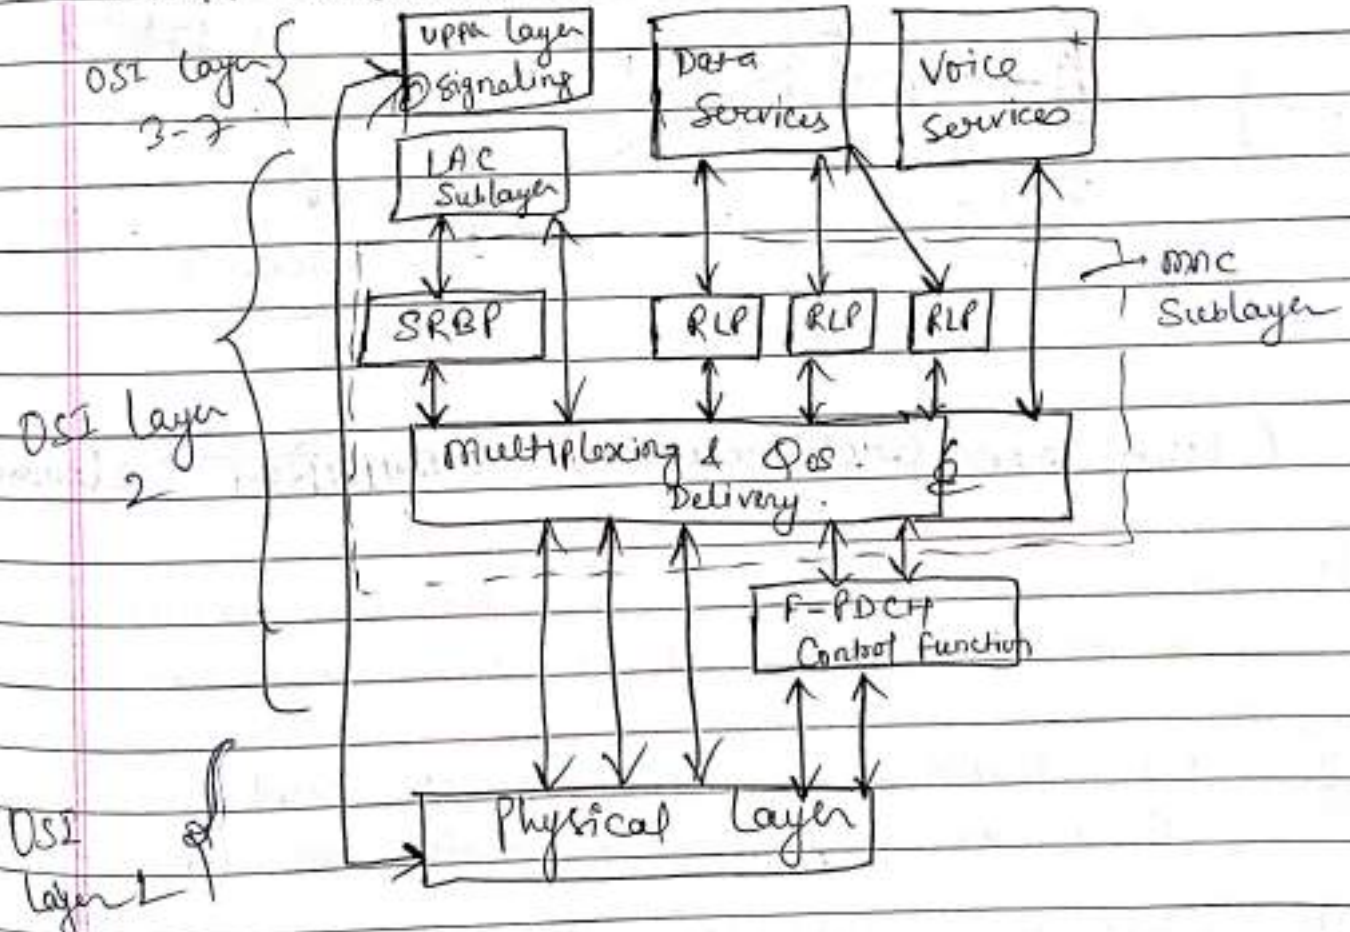 Upper layer
Signaling
OSI layer
3-7
Data
Services
Voice
Services
LAC
Sublayer
MAC
Sublayer
SRBP
RLP
RLP
RLP
OSI layer
2
Multiplexing & QoS.
Delivery.
F-PDCH
Control function
Physical Layer
OSI
layer 1